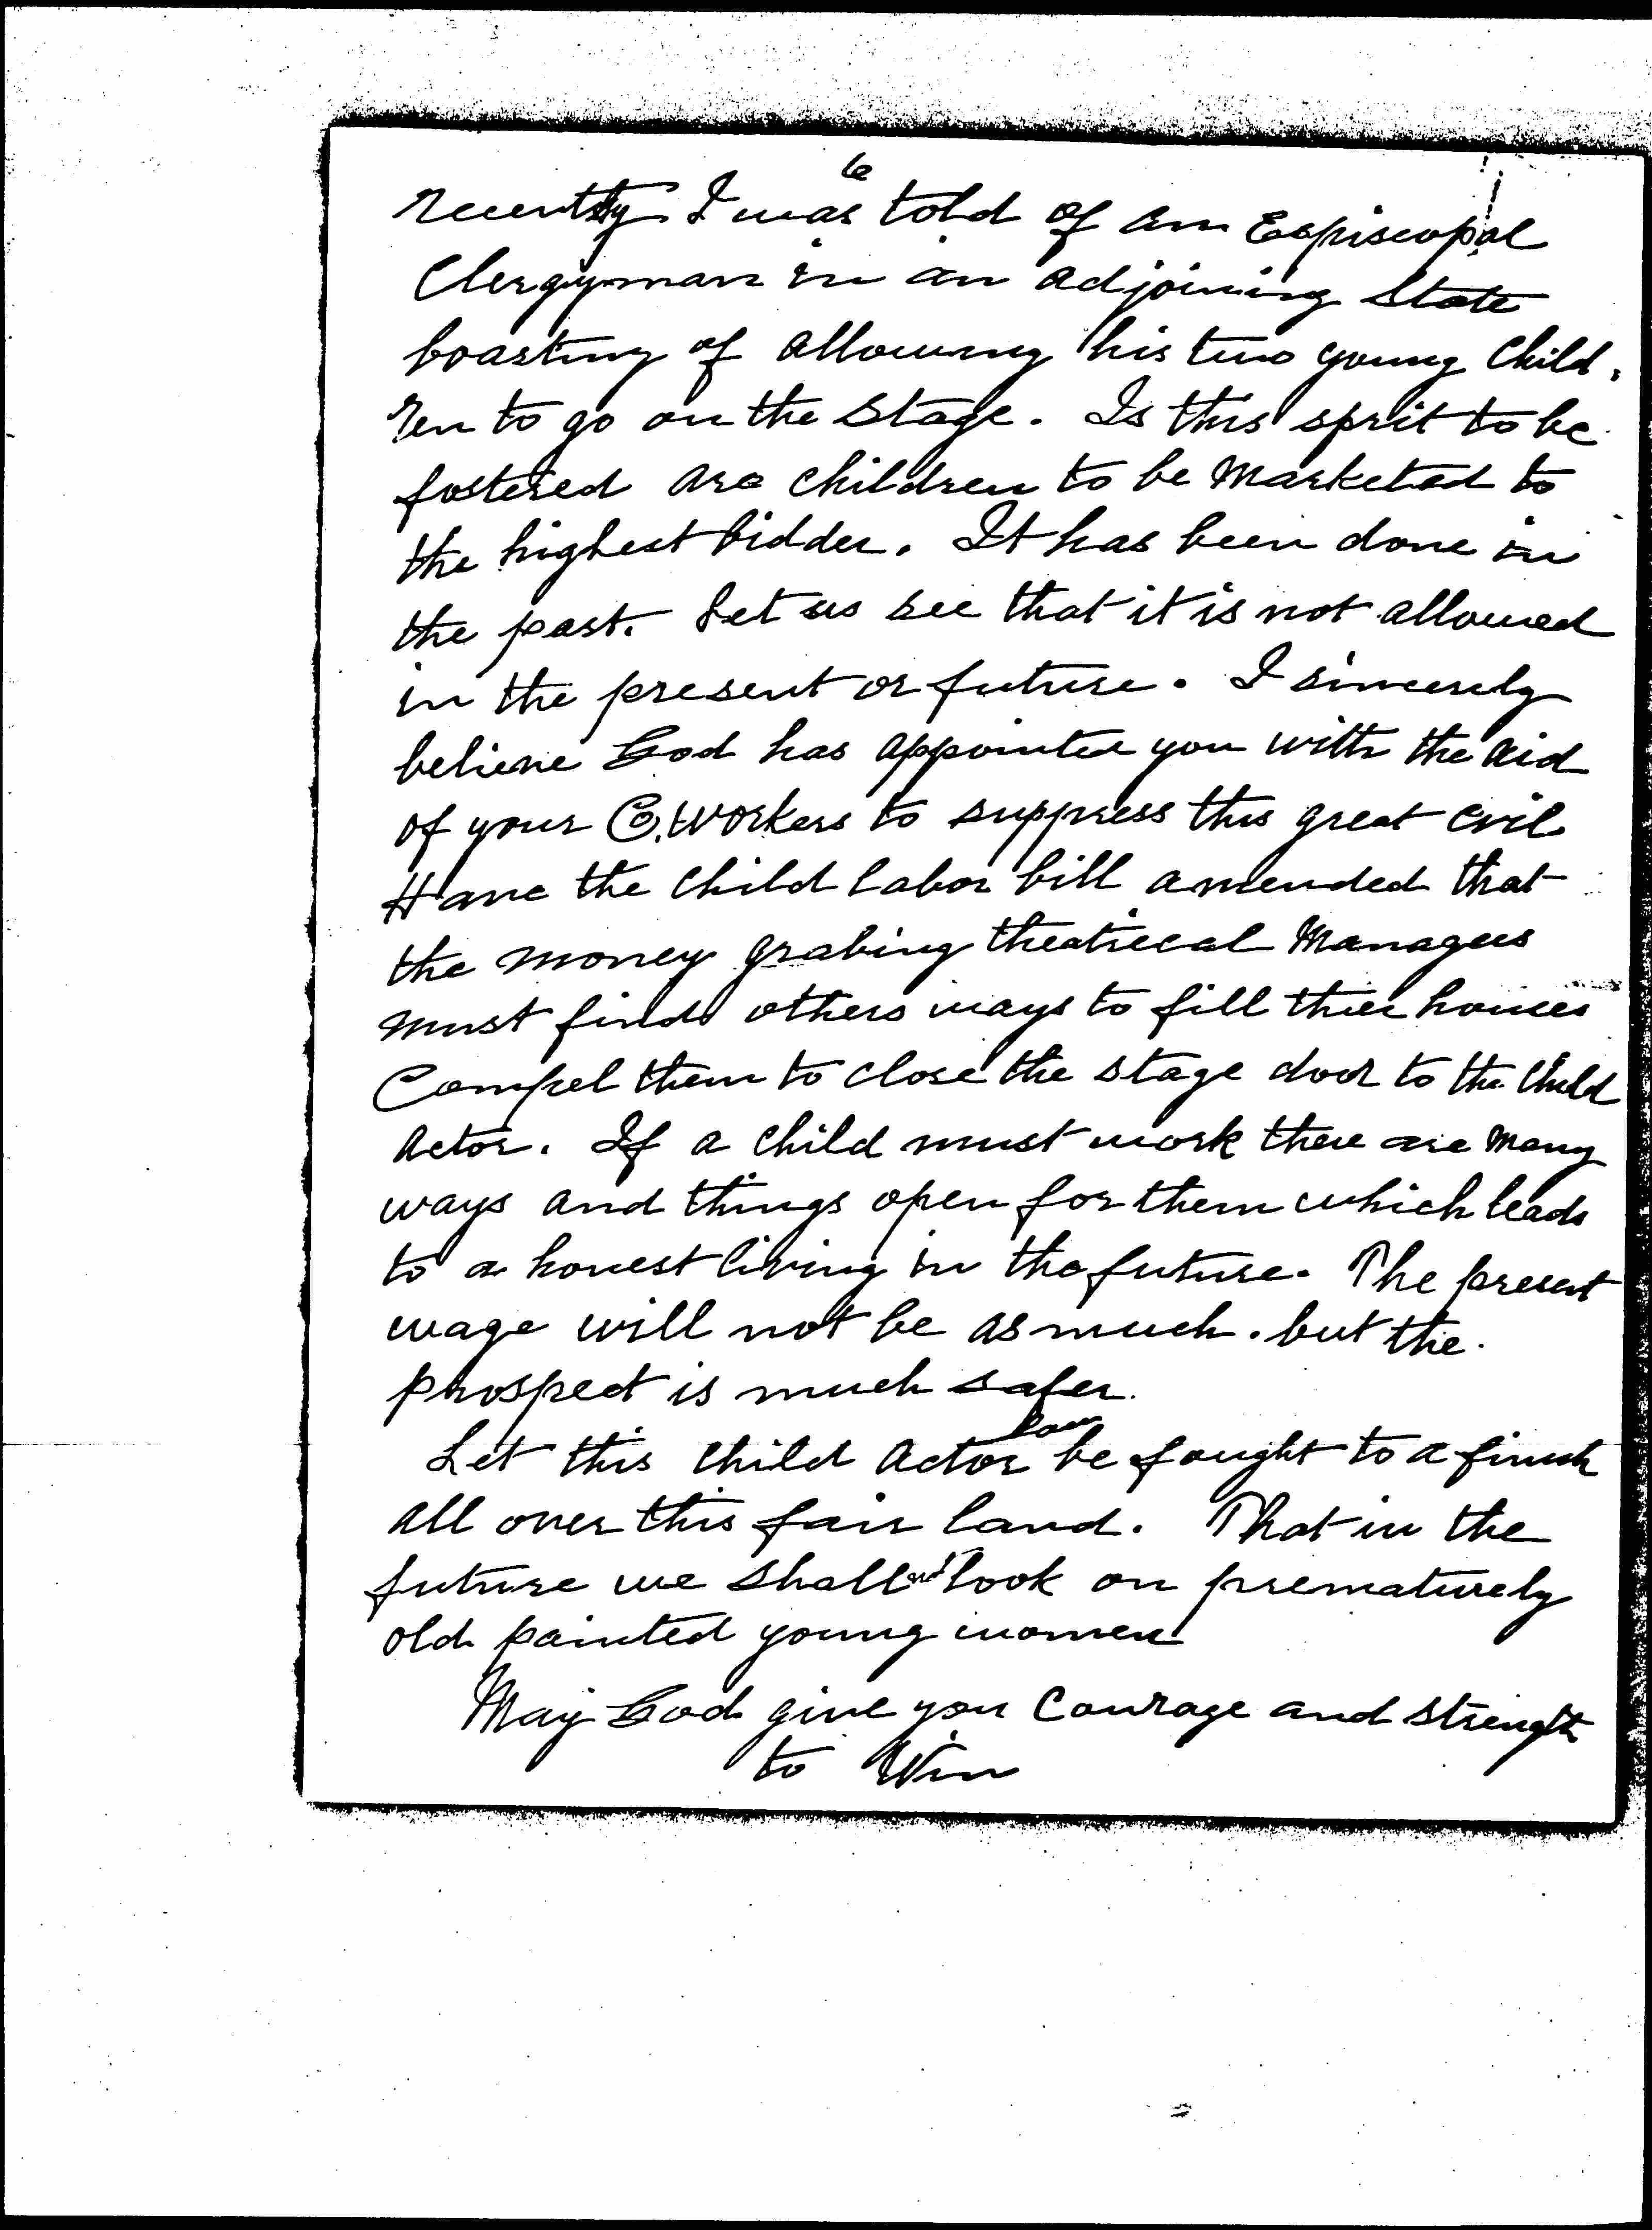 6
recently I was told of an Espiscopal
Clergyman in an adjoining State
boasting of allowing his two young Child,
ren to go on the Stage. Is this sprit to be
fostered are children to be marketed to
the highest bidder. It has been done in
the past. Let us see that it is not allowed
in the present or future. I sincerely
believe God has appointed you with the aid
of your Co,workers to suppress this great evil
Have the Child labor bill amended that
the money grabing theatrecal managers
must find others ways to fill thier houses
Compel them to close the stage door to the Child
Actor. If a child must work there are many
ways and things open for them which leads
to a honest living in the future. The present
wage will not be as much. but the
prospect is much safer.
law
Let this child Actor be fought to a finish
all over this fair land. That in the
future we shall not look on prematurely
old painted young women
May God give you Courage and strength
to Win